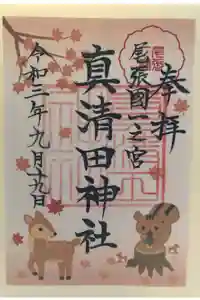 奉拝
尾張國一之宮
真清田神社
令和三年九月十九日